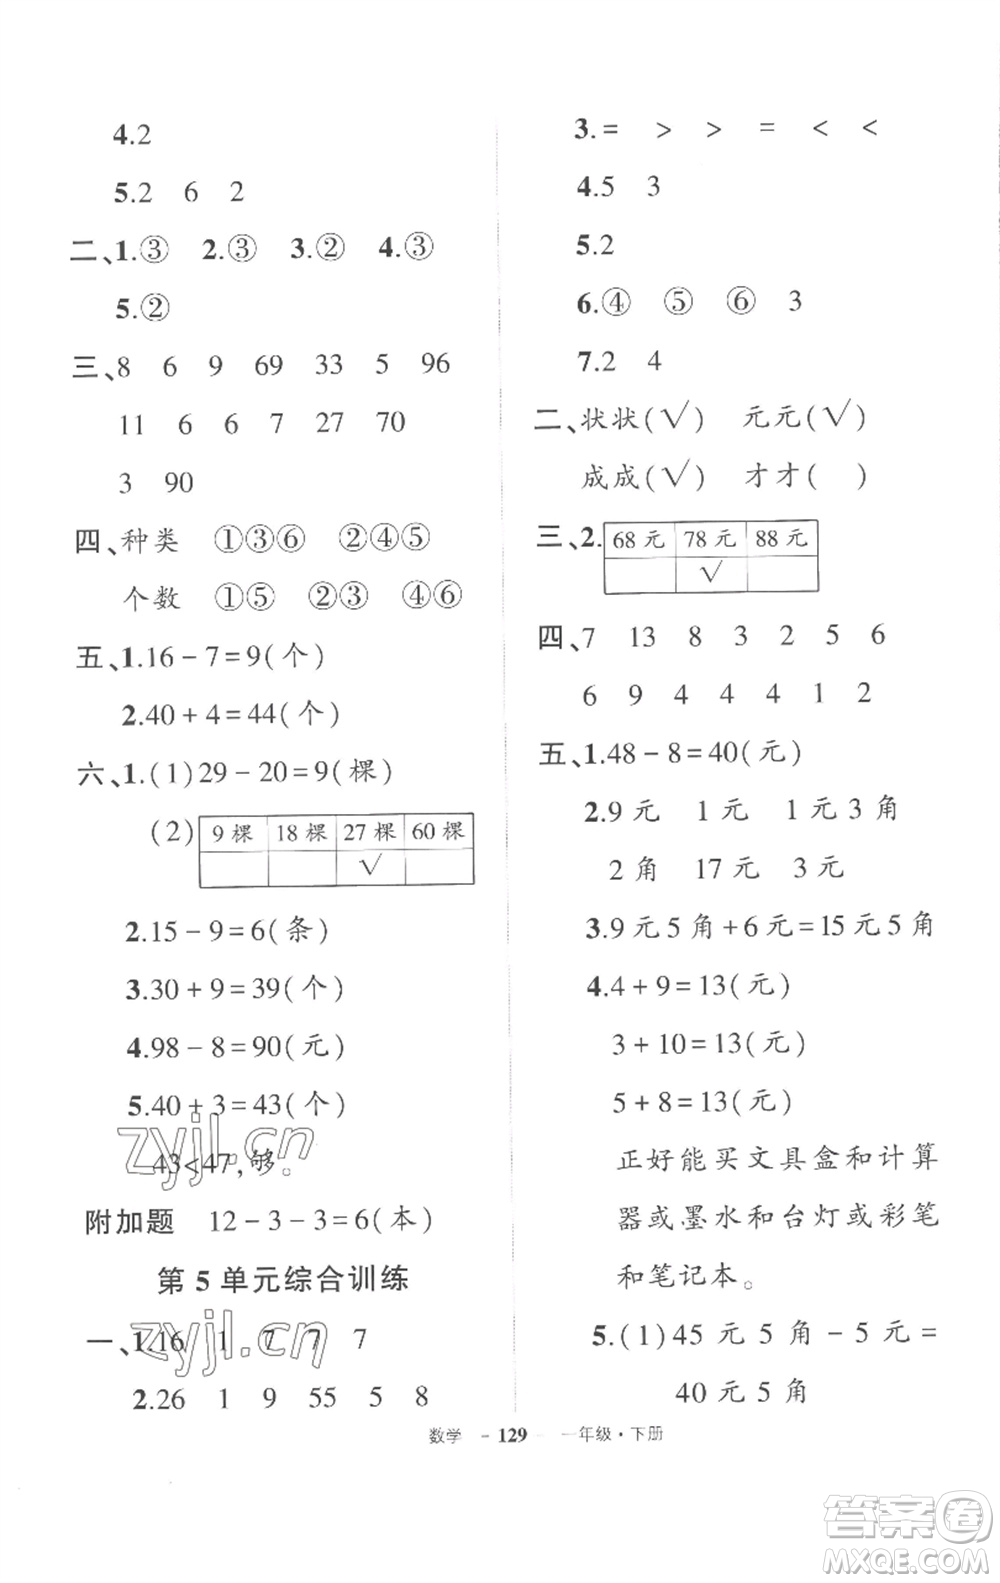 4.2
5.2 6 2
二、1.③ 2.③ 3.② 4.③
5.②
三、8 6 9 69 33 5 96
11 6 6 7 27 70
3 90
四、种类 ①③⑥ ②④⑤
个数 ①⑤ ②③ ④⑥
五、1.16－7＝9(个)
2.40＋4＝44(个)
六、1.(1)29－20＝9(棵)
(2) 9棵 18棵 27棵 60棵
√
2.15－9＝6(条)
3.30＋9＝39(个)
4.98－8＝90(元)
5.40＋3＝43(个)
43<47,够。
附加题 12－3－3＝6(本)
第5单元综合训练
一、1.16 1 7 7 7
2.26 1 9 55 5 8
3.＝ > > ＝ < <
4.5 3
5.2
6.④ ⑤ ⑥ 3
7.2 4
二、状状(√) 元元(√)
成成(√) 才才( )
三、2. 68元 78元 88元
√
四、7 13 8 3 2 5 6
6 9 4 4 4 1 2
五、1.48－8＝40(元)
2.9元 1元 1元3角
2角 17元 3元
3.9元5角＋6元＝15元5角
4.4＋9＝13(元)
3＋10＝13(元)
5＋8＝13(元)
正好能买文具盒和计算
器或墨水和台灯或彩笔
和笔记本。
5.(1)45元5角－5元＝
40元5角
数学 －129 一年级·下册
zyjl.cn
zyjl.cn
答案圈
MXQE.COM